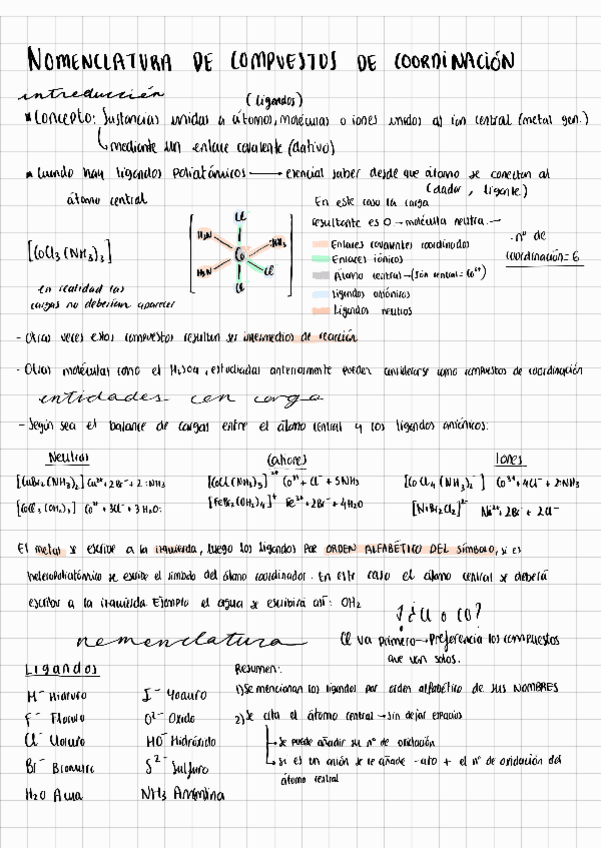 NOMENCLATURA DE COMPUESTOS DE COORDINACIÓN
introducción
(ligandos)
* Concepto: Sustancias unidas a átomos, moléculas o iones unidos al ion central (metal gen.)
mediante un enlace covalente (dativo)
* Cuando hay ligandos poliatómicos → esencial saber desde que átomo se conectan al
(dador, ligante)
átomo central
En este caso la carga
resultante es 0 → molécula neutra. —
[CoCl3(NH3)3]
Cl
H3N
:NH3
Co
H3N
Cl
Cl
Enlaces covalentes coordinados
Enlaces iónicos
Átomo central → (Ión central = Co3+)
Ligandos aniónicos
Ligandos neutros
· nº de
coordinación = 6
en realidad las
cargas no deberían aparecer
- Otras veces estos compuestos resultan ser intermedios de reacción
- Otras moléculas como el H2SO4, estudiadas anteriormente pueden considerarse como compuestos de coordinación
entidades con carga
- Según sea el balance de cargas entre el átomo central y los ligandos aniónicos:
Neutras
[CuBr2(NH3)2] Cu2+ + 2Br- + 2 :NH3
[CoCl3(OH2)3] Co3+ + 3Cl- + 3H2O:
Cationes
[CoCl(NH3)5]2+ Co3+ + Cl- + 5NH3
[FeBr2(OH2)4]+ Fe3+ + 2Br- + 4H2O
Iones
[CoCl4(NH3)2-] Co3+ + 4Cl- + 2:NH3
[NiBr2Cl2]2- Ni2+ + 2Br- + 2Cl-
El metal se escribe a la izquierda, luego los ligandos por ORDEN ALFABÉTICO DEL SÍMBOLO, si es
heteropoliatómico se escribe el símbolo del átomo coordinador. En este caso el átomo central se deberá
escribir a la izquierda. Ejemplo el agua se escribirá así: OH2
¿Cl o CO?
Cl va primero → Preferencia los compuestos
que van solos.
nomenclatura
Ligandos
H- Hidruro
F- Floruro
Cl- Cloruro
Br- Bromuro
H2O Aqua
I- Yoduro
O2- Oxido
HO- Hidróxido
S2- Sulfuro
NH3 Ammina
Resumen:
1) Se mencionan los ligandos por orden alfabético de sus NOMBRES
2) Se cita el átomo central → sin dejar espacios
→ Se puede añadir su nº de oxidación
→ si es un anión se le añade -ato + el nº de oxidación del
átomo central